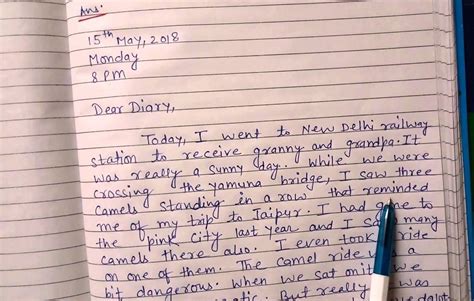 Ans.
15th May, 2018
Monday
8 pm
Dear Diary,
Today, I went to New Delhi railway
station to receive granny and grandpa. It
was really a sunny day. While we were
crossing the yamuna bridge, I saw three
camels standing in a row that reminded
me of my trip to Jaipur. I had to
the pink city last year and I many
camels there also. I even took ride
on one of them. The camel ride a
bit dangerous. When we sat on it we
But really